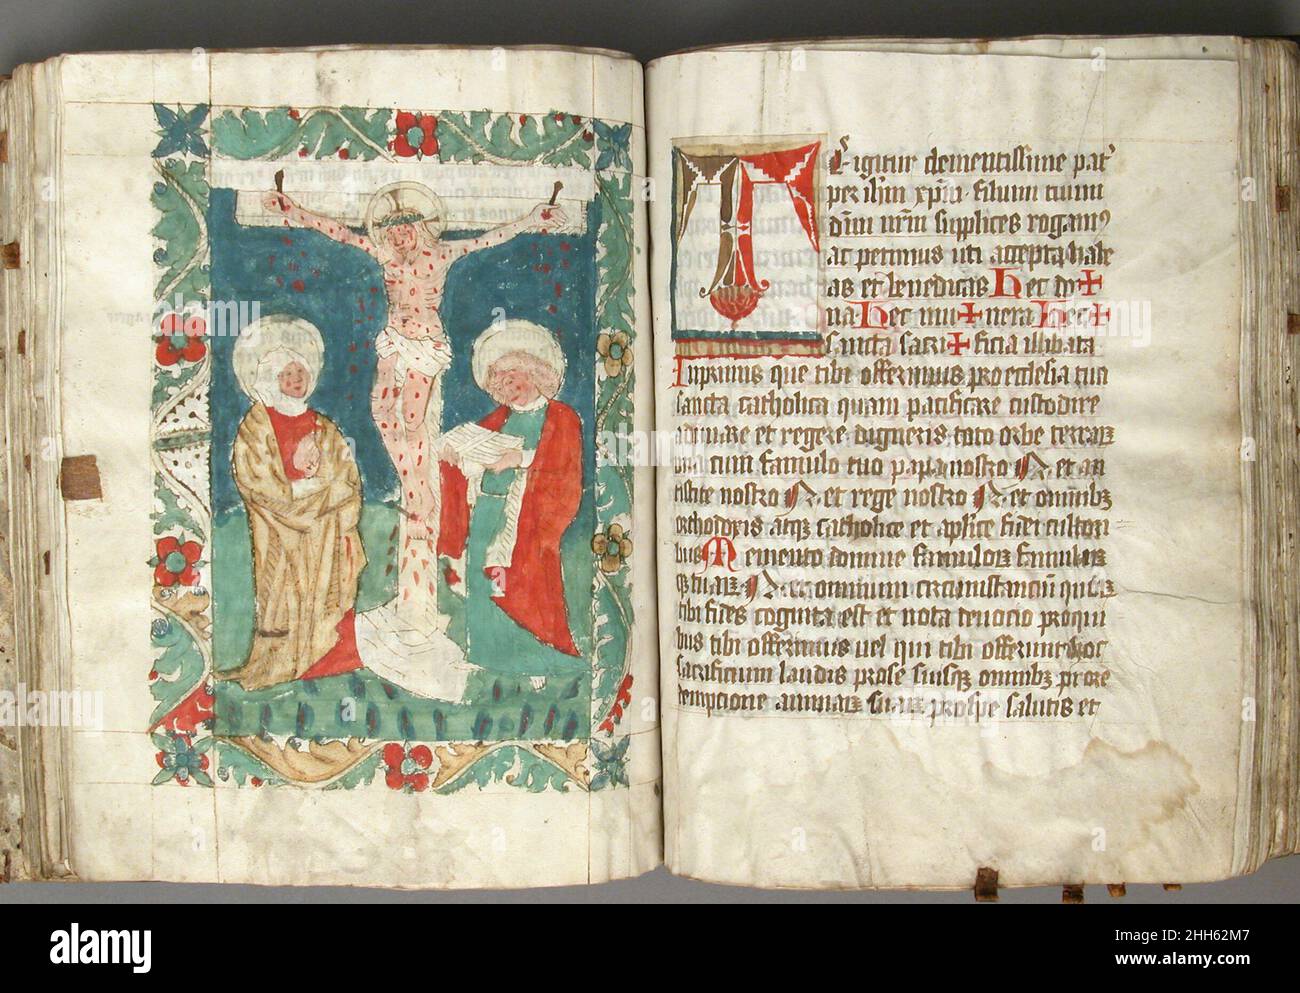 T E igitur clementissime pat᷑
per ihm xpm filium tuum
dñm nr̃m supplices rogamꝰ
ac petimus uti accepta habe
as et benedicas Hec do ✠
na Hec mu ✠ nera Hec ✠
sancta sacri ✠ ficia illibata
Inprimis que tibi offerimus pro ecclesia tua
sancta catholica quam pacificare custodire
adunare et regere digneris toto orbe terraꝝ
una cum famulo tuo papa nostro N et an
tistite nostro N et rege nostro N et omnibꝫ
orthodoxis atqꝫ catholice et aplice fidei cultori
bus Memento domine famuloꝝ famulaꝝ
qꝫ tuaꝝ N et omnium circumstanciũ quoꝝ
tibi fides cognita est et nota deuocio pro qui
bus tibi offerimus uel qui tibi offerunt hoc
sacrificium laudis pro se suisqꝫ omnibꝫ pro re
demptione animaꝝ suaꝝ pro spe salutis et
alamy
Image ID: 2HH62M7
www.alamy.com